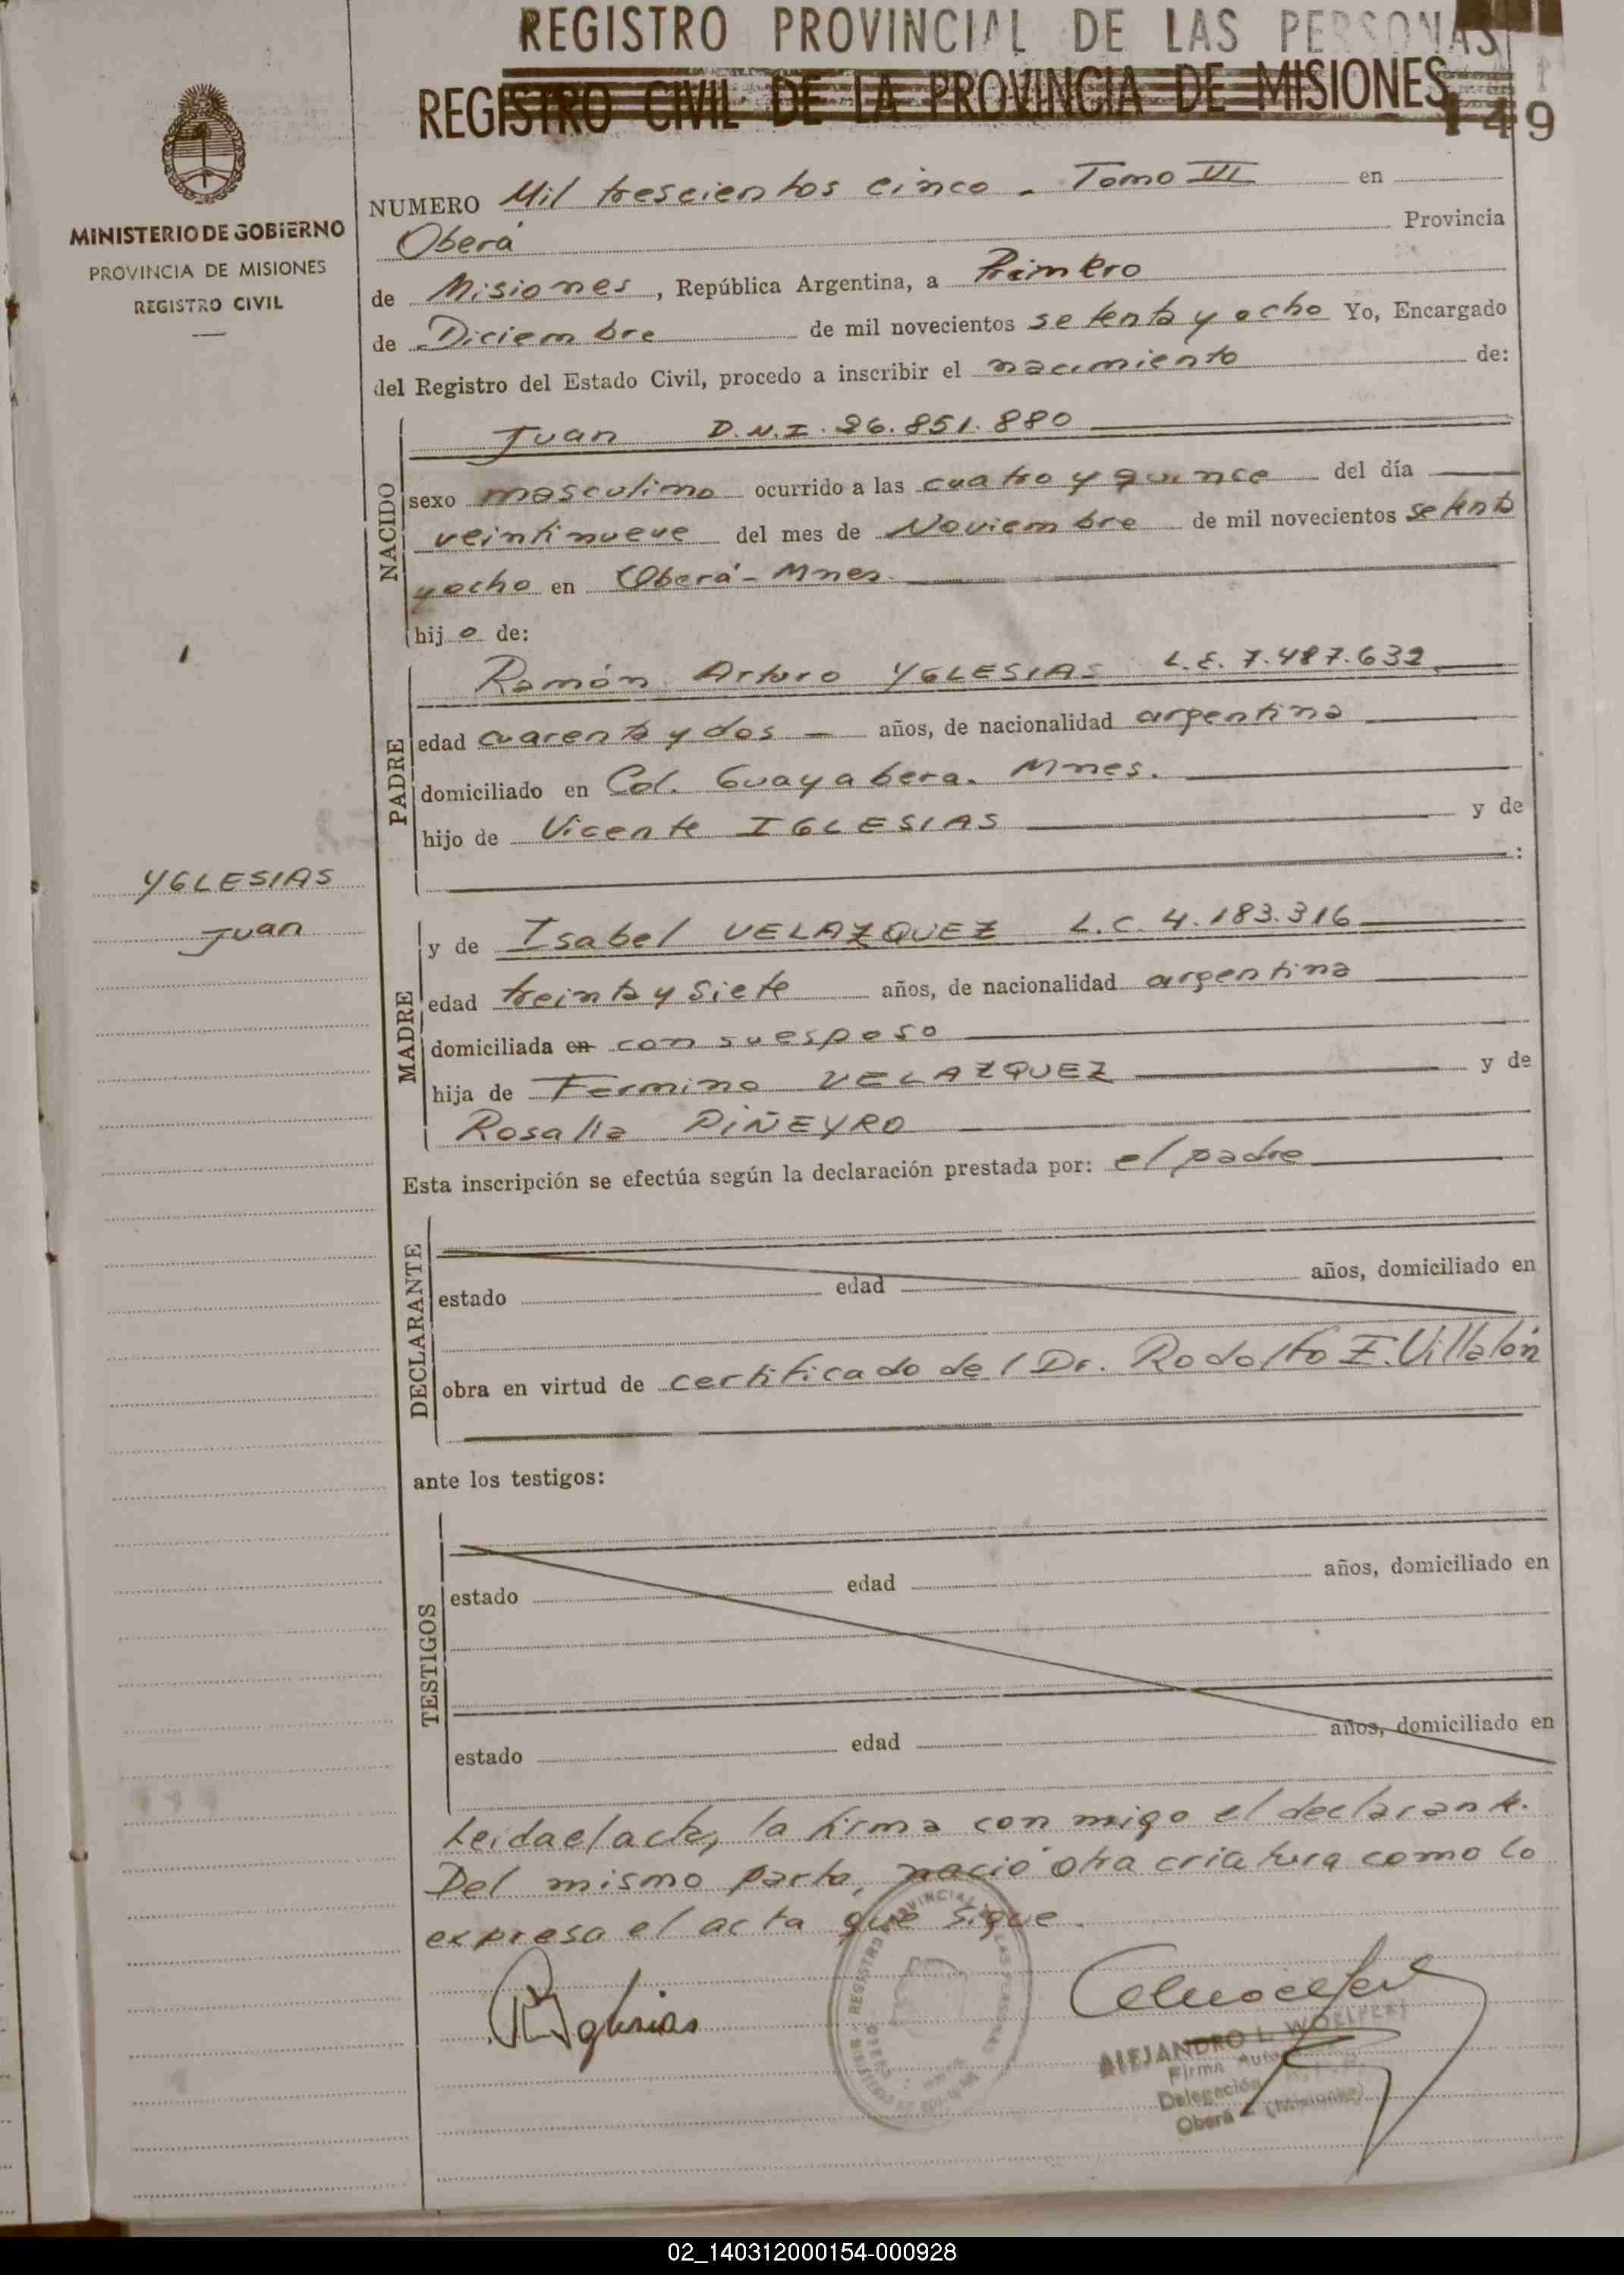 REGISTRO PROVINCIAL DE LAS PERSONAS
REGISTRO CIVIL DE LA PROVINCIA DE MISIONES
149
MINISTERIO DE GOBIERNO
PROVINCIA DE MISIONES
REGISTRO CIVIL
NUMERO Mil trescientos cinco - Tomo VII en
Oberá Provincia
de Misiones, República Argentina, a Primero
de Diciembre de mil novecientos setenta y ocho Yo, Encargado
del Registro del Estado Civil, procedo a inscribir el nacimiento de:
NACIDO
Juan D.N.I. 26.851.880
sexo masculino ocurrido a las cuatro y quince del día
veintinueve del mes de Noviembre de mil novecientos setenta
yocho en Oberá - Mnes.
hijo de:
PADRE
Ramón Arturo YGLESIAS L.E. 7.487.632
edad cuarenta y dos años, de nacionalidad argentina
domiciliado en Col. Guayabera. Mnes.
hijo de Vicente IGLESIAS y de
:
YGLESIAS
Juan
MADRE
y de Isabel VELAZQUEZ L.C. 4.183.316
edad treinta y siete años, de nacionalidad argentina
domiciliada en con su esposo
hija de Fermino VELAZQUEZ y de
Rosalia PIÑEYRO
Esta inscripción se efectúa según la declaración prestada por: el padre
DECLARANTE
estado edad años, domiciliado en
obra en virtud de certificado del Dr. Rodolfo E. Villalón
ante los testigos:
TESTIGOS
estado edad años, domiciliado en
estado edad años, domiciliado en
Leida el acta, la firma con migo el declarante.
Del mismo parto, nació otra criatura como lo
expresa el acta que sigue.
Yglesias
REGISTRO PROVINCIAL DE LAS PERSONAS
ALEJANDRO L. WOELFERT
Firma Auto
Delegación
Oberá - (Misiones)
02_140312000154-000928